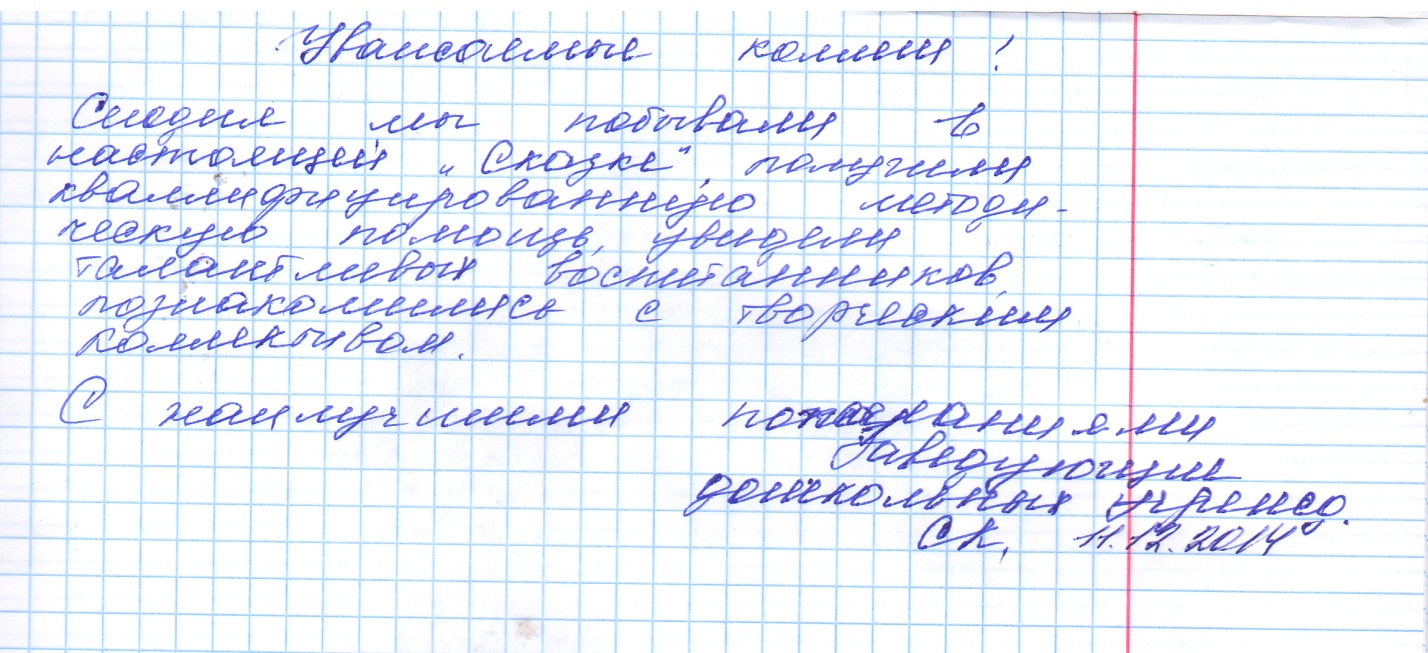 Уважаемые коллеги!
Сегодня мы побывали в
настоящей „Сказке", получили
кваллифицированную методи-
ческую помощь, увидели
талантливых воспитанников,
познакомились с творческим
коллективом.
С наилучшими пожеланиями
Заведующие
дошкольных учрежд.
СК, 11.12.2014